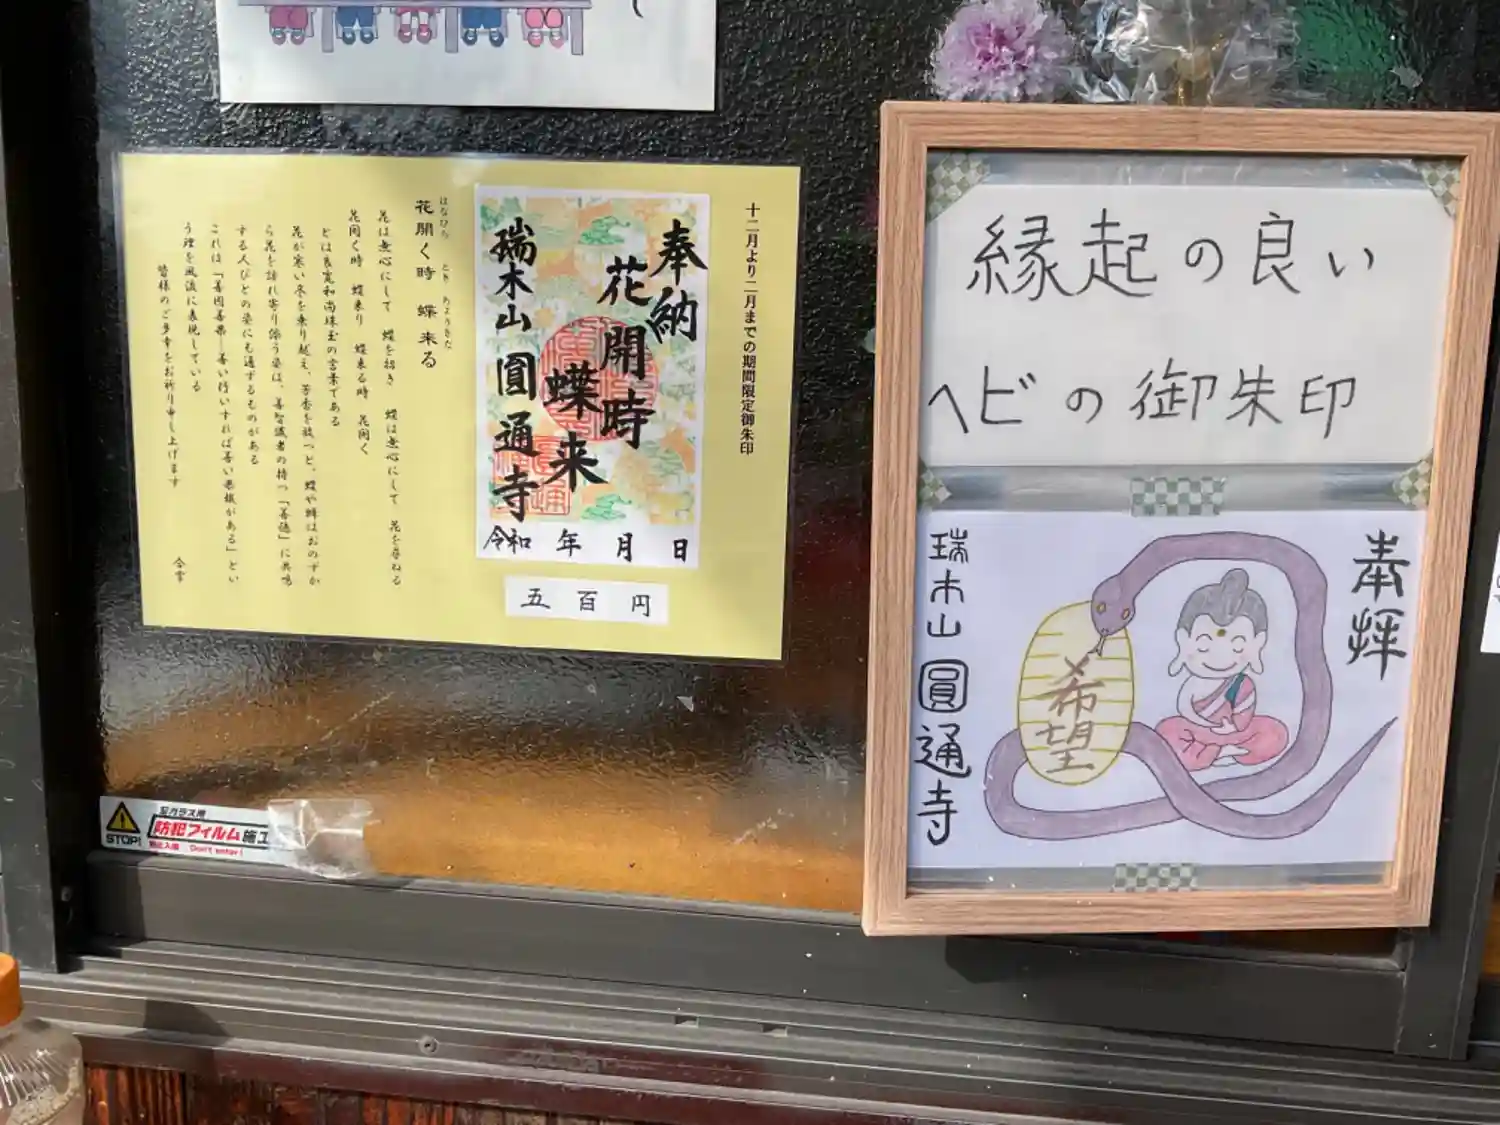 十二月より二月までの期間限定御朱印
奉納
花開時
蝶来
瑞木山 圓通寺
令和 年 月 日
五百円
はなひら とき ちょうきた
花開く時 蝶来る
花は無心にして 蝶を招き 蝶は無心にして 花を尋ねる
花開く時 蝶来り 蝶来る時 花開く
とは良寛和尚珠玉の言葉である
花が寒い冬を乗り越え、芳香を放つと、蝶や蜂はおのずか
ら花を訪れ寄り添う姿は、善知識者の持つ「善徳」に共鳴
する人びとの姿にも通ずるものがある
これは「善因善果―善い行いすれば善い果報がある」とい
う理を風流に表現している
皆様のご多幸をお祈り申し上げます
合掌
縁起の良い
ヘビの御朱印
奉拝
希望
瑞木山 圓通寺
STOP!
窓ガラス用
防犯フィルム施工
無断立入禁止 Don't enter!